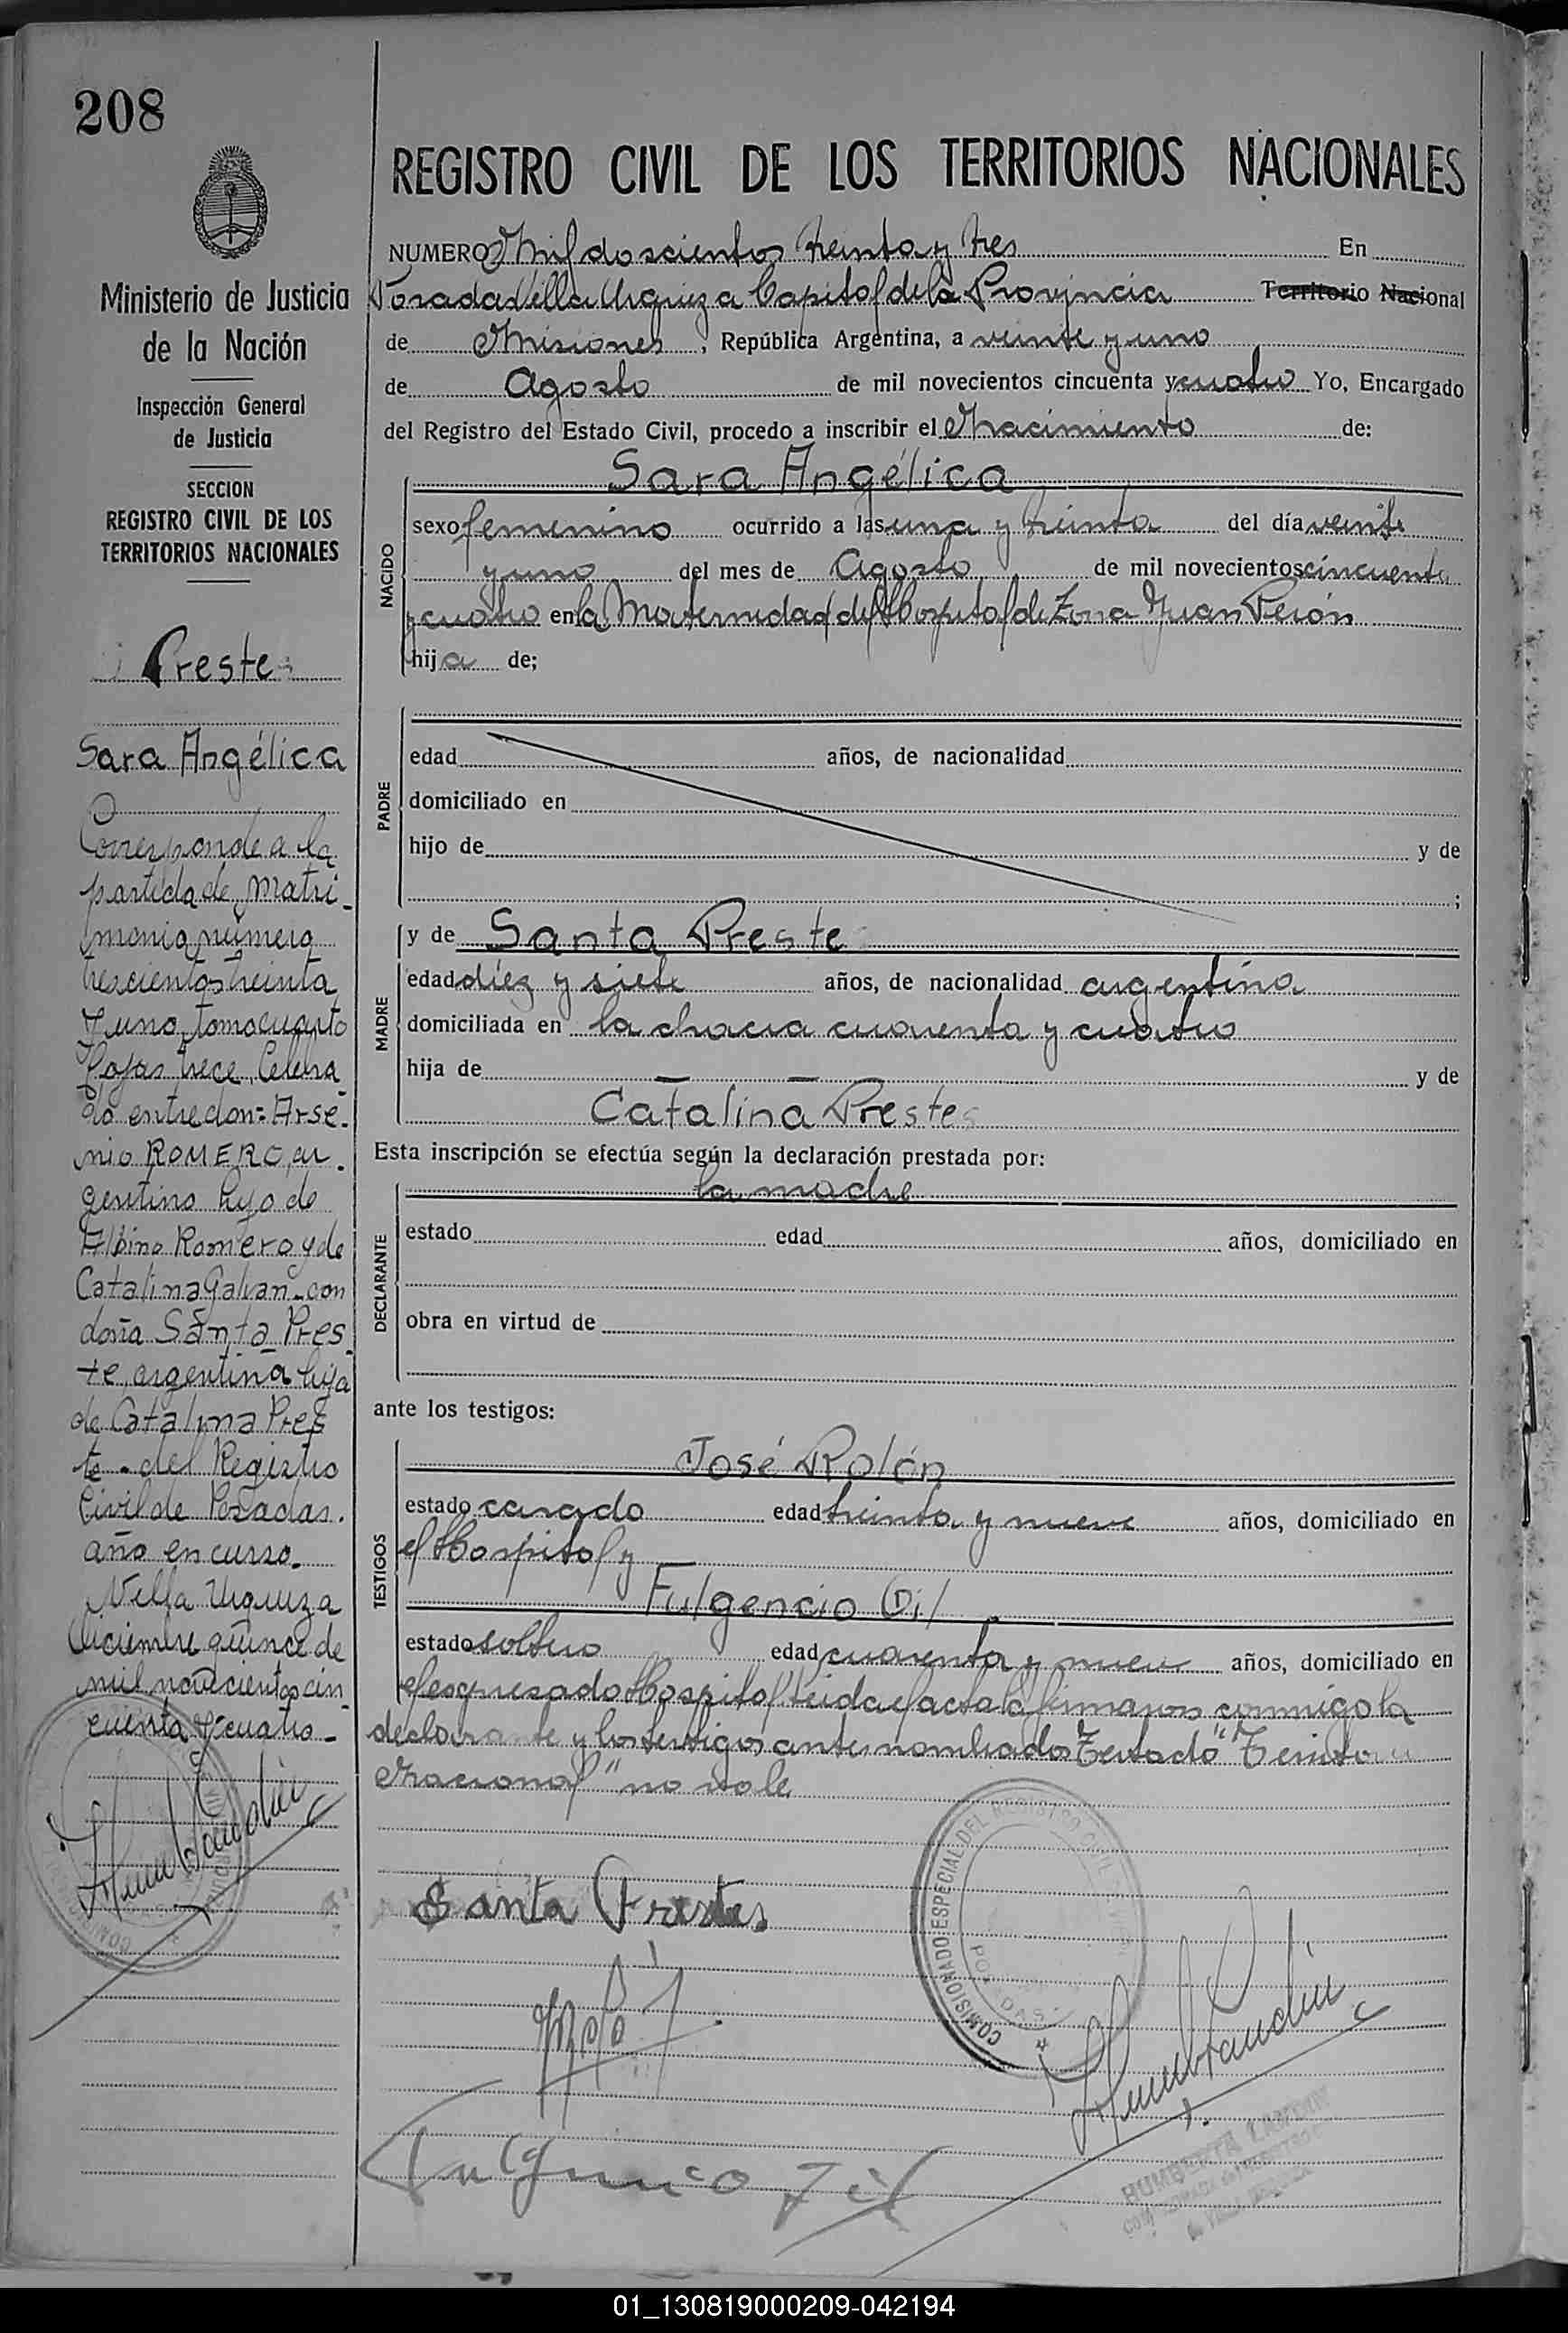 208
Ministerio de Justicia
de la Nación
Inspección General
de Justicia
SECCION
REGISTRO CIVIL DE LOS
TERRITORIOS NACIONALES
Preste
Sara Angélica
Corresponde a la
partida de Matri-
monio número
trescientos treinta
y uno, tomo cuarto
fojas trece, Celebra-
do entre don: Arse-
nio ROMERO, ar-
gentino hijo de
Albino Romero y de
Catalina Galvan-con
doña Santa Pres-
te, argentina hija
de Catalina Pres
te - del Registro
Civil de Posadas.
año en curso.
Villa Urquiza
Diciembre quince de
mil novecientos cin
cuenta y cuatro-
REGISTRO CIVIL DE LOS TERRITORIOS NACIONALES
NUMERO Mil doscientos treinta y tres En
Posadas Villa Urquiza Capital de la Provincia Territorio Nacional
de Misiones, República Argentina, a veinte y uno
de Agosto de mil novecientos cincuenta y cuatro Yo, Encargado
del Registro del Estado Civil, procedo a inscribir el Nacimiento de:
NACIDO
Sara Angélica
sexo femenino ocurrido a las una y treinta del día veinte
y uno del mes de Agosto de mil novecientos cincuenta
y cuatro en la Maternidad del Hospital de Zona Juan Perón
hija de;
PADRE
edad años, de nacionalidad
domiciliado en
hijo de y de
;
MADRE
y de Santa Preste
edad diez y siete años, de nacionalidad argentina
domiciliada en la chacra cuarenta y cuatro
hija de — — y de
Catalina Prestes
Esta inscripción se efectúa según la declaración prestada por:
DECLARANTE
la madre
estado edad años, domiciliado en
obra en virtud de
ante los testigos:
TESTIGOS
José Rolón
estado casado edad treinta y nueve años, domiciliado en
el Hospital y
Fulgencio Gil
estado soltero edad cuarenta y nueve años, domiciliado en
el expresado Hospital Leida el acta la firmaron conmigo la
declarante y los testigos antes nombrados Testado "Territorio
Nacional" no vale
Santa Prestes
COMISIONADO ESPECIAL DEL REGISTRO CIVIL
POSADAS
Fulgencio Gil
01_130819000209-042194